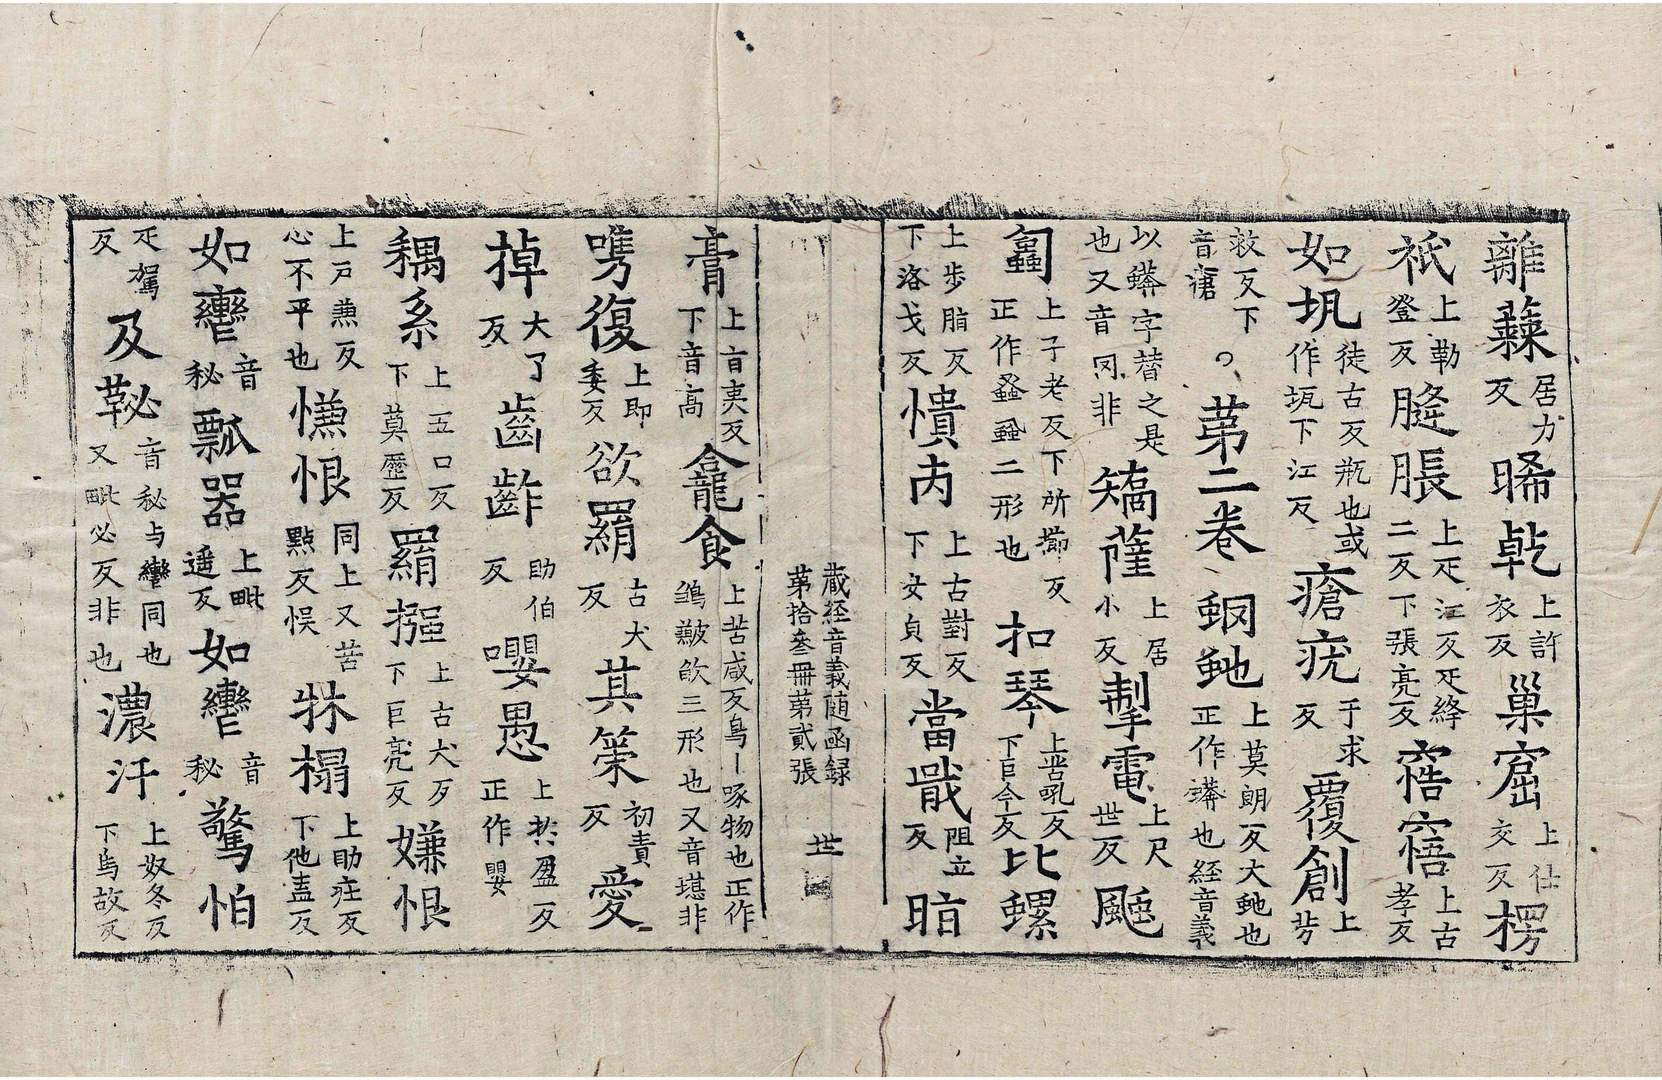 離蘓居力反晞乹上許衣反巢窟上仕交反楞
祇上勒登反胮脹上疋江反疋絳二反下張亮反窖窹上古孝反
如㘬徒古反瓶也或作瓨下江反瘡疣于求反覆創上芳
救反下音瘡第二卷蚦虵上莫朗反大虵也正作蟒也經音義
以蟒字替之是也又音冈非矯薩上居小反掣電上尺世反颰
匐上子老反下所擳反正作蚤虱二形也扣琴上苦吼反下巨今反比螺
上步脂反下洛戈反憒丙上古對反下女貞反當戢阻立反暗
蔵経音義随函録第拾叁冊第貳張 世
膏上盲夷反下音高龕食上苦咸反鳥丨啄物也正作鵮䶎欱三形也又音堪非
㗱復上即委反欲羂古犬反其筞初責反愛
掉大了反齒齚助伯反嚶愚上扵盈反正作嬰
耦系上五口反下莫歷反羂摾上古犬反下巨亮反嫌恨
上戸蒹反心不平也慊恨同上又苦點反悮牀榻上助庄反下他盍反
如轡音秘瓢器上毗遥反如轡音秘驚怕
疋駕反及鞑音秘与轡同也又毗必反非也濃汙上奴冬反下烏故反